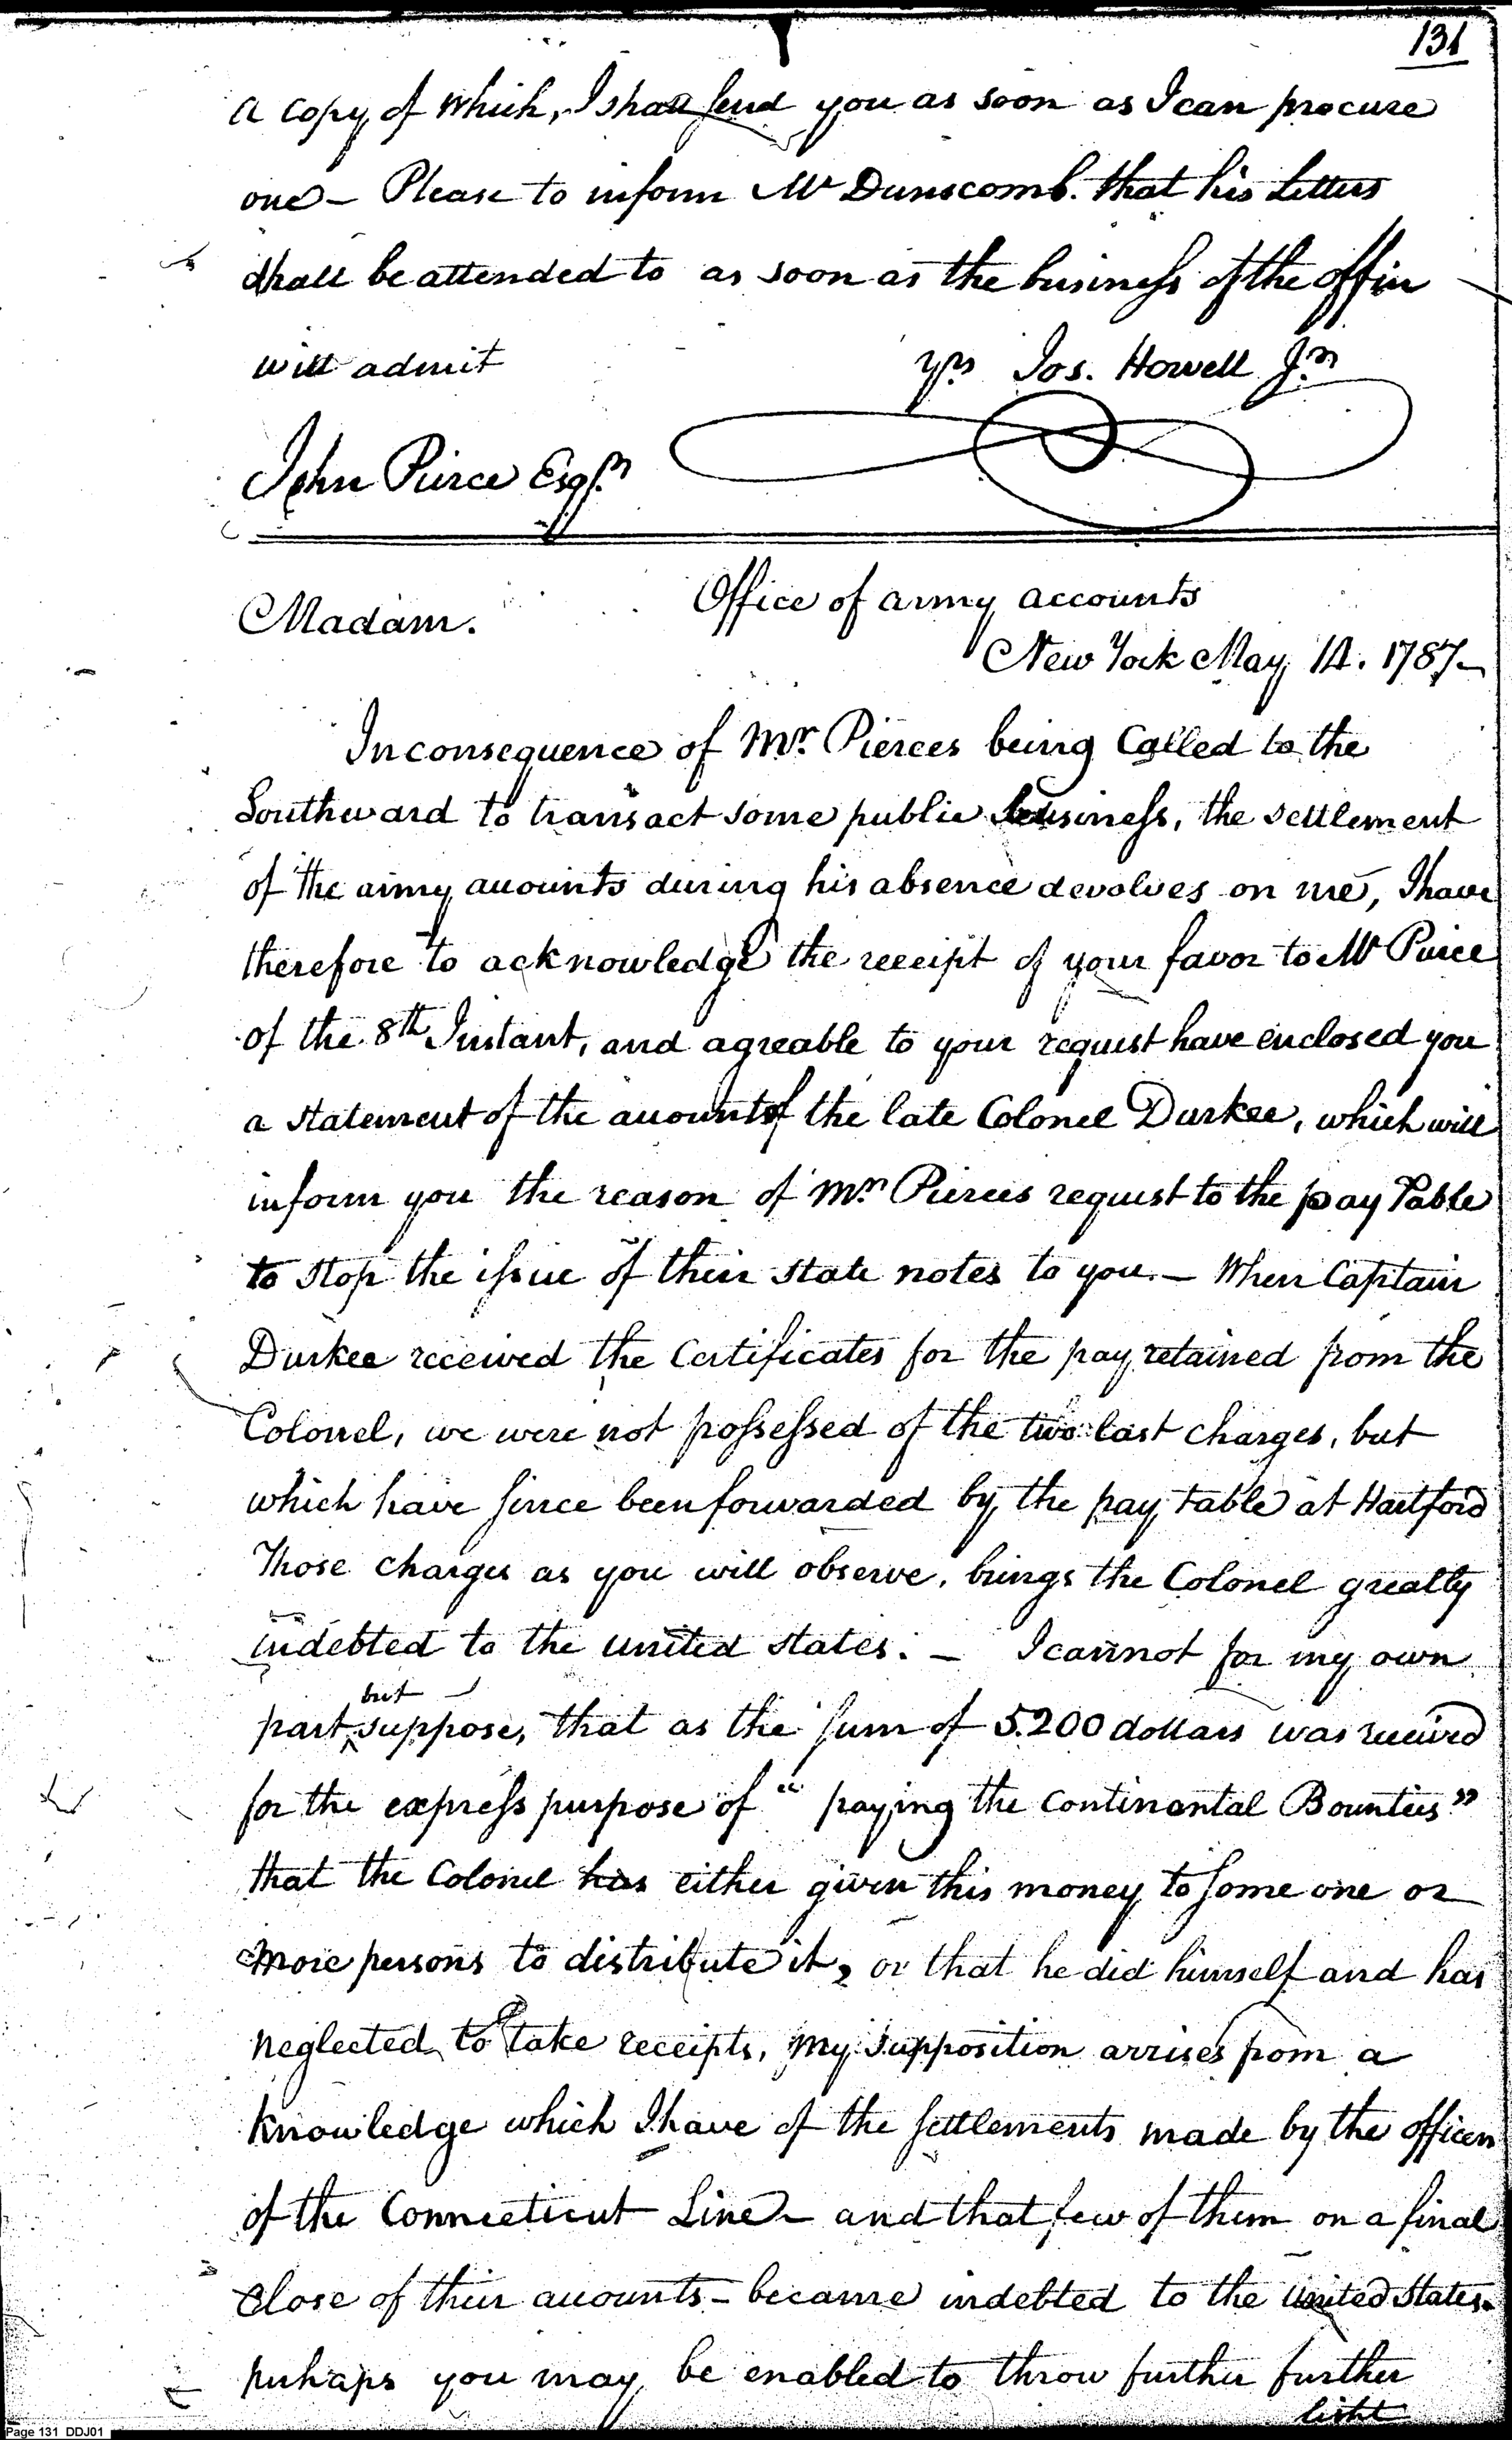 131
a copy of which, I shall send you as soon as I can procure
one – Please to inform Mr Dunscomb. that his Letters
shall be attended to as soon as the business of the office
will admit
yrs Jos. Howell Jr
John Pierce Esqr
Office of army accounts
Madam.
New York May 14. 1787 –
In consequence of Mr. Pierces being Called to the
Southward to transact some public business, the settlement
of the army accounts during his absence devolves on me, I have
therefore to acknowledge the receipt of your favor to Mr Pierce
of the 8th Instant, and agreable to your request have enclosed you
a statement of the accounts of the late Colonel Durkee, which will
inform you the reason of Mr. Pierces request to the pay Table
to stop the issue of their state notes to you. – When Captain
Durkee received the Certificates for the pay retained from the
Colonel, we were not possessed of the two last charges, but
which have since been forwarded by the pay table at Hartford
Those charges as you will observe, brings the Colonel greatly
indebted to the united states. – I cannot for my own
but
part suppose, that as the sum of 5.200 dollars was received
for the express purpose of " paying the Continantal Bounties"
that the Colonel has either given this money to some one or
more persons to distribute it, or that he did himself and has
neglected to take receipts, my supposition arrises from a
knowledge which I have of the settlements made by the officers
of the Connecticut Line – and that few of them on a final
close of their accounts – became indebted to the United States.
perhaps you may be enabled to throw further further
light
Page 131 DDJ01